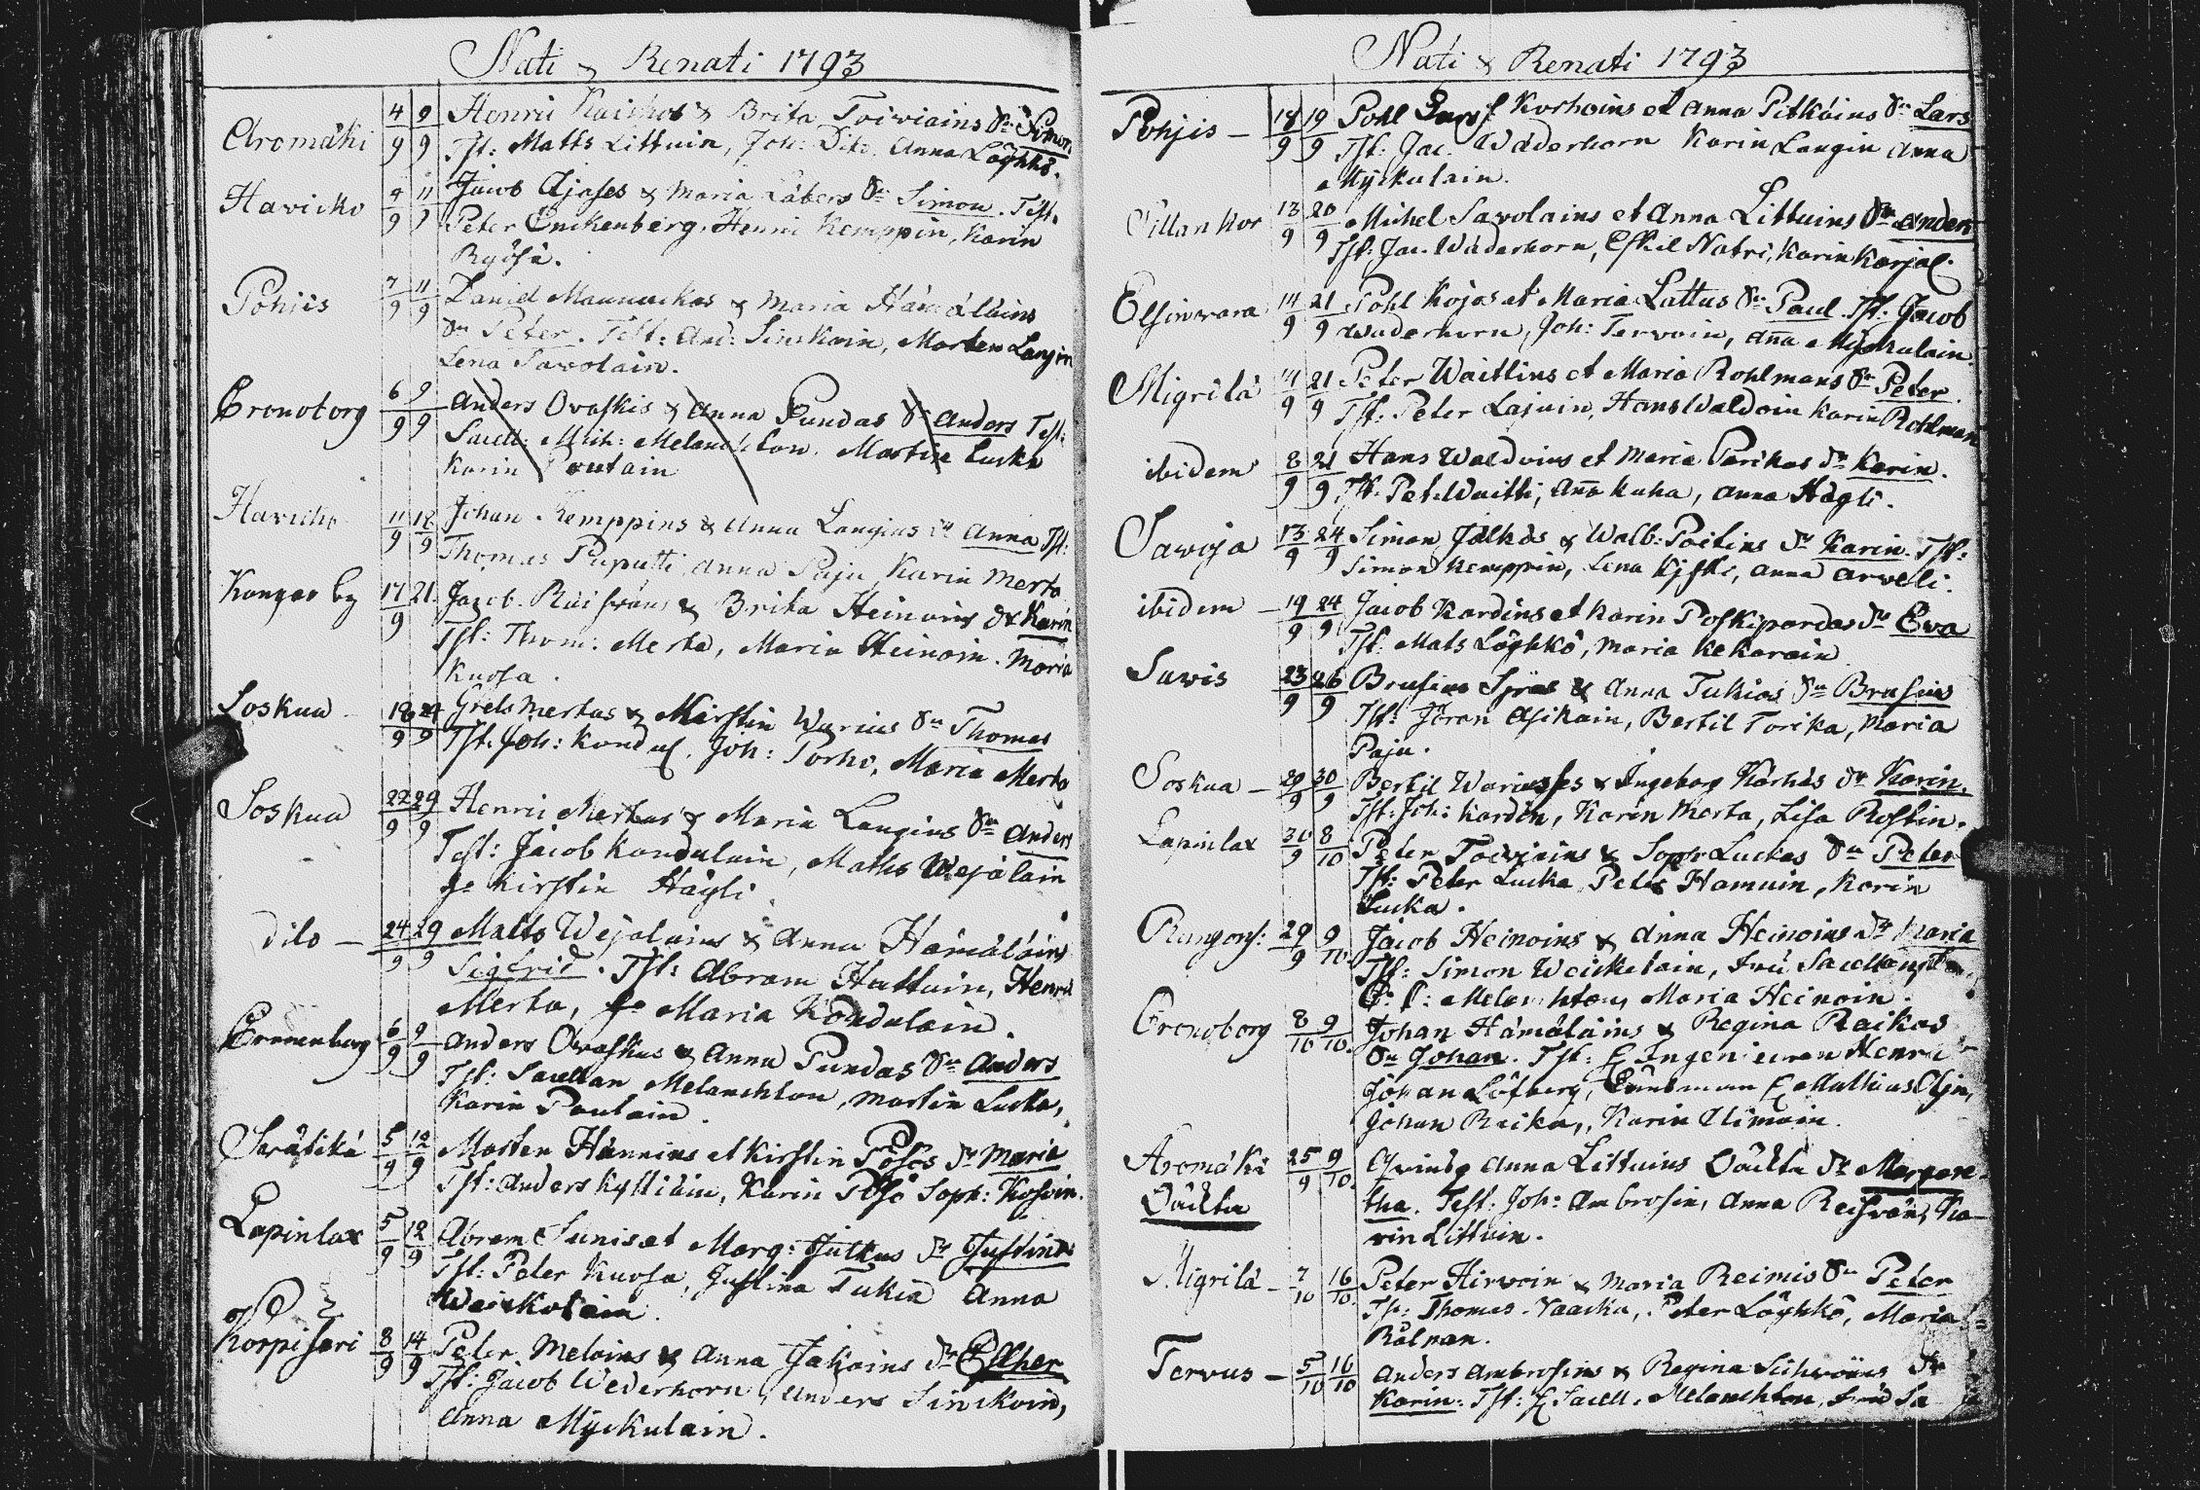 Nati & Renati 1793
Aromäki 4/9 9/9 Henric Raickas & Brita Toiviains Sn Simon
Tst: Matts Littuin, Joh: Dito. Anna Löghkö.
Havicko 4/9 11/9 Jacob Ajases & Maria Läbers Sn Simon. Test.
Peter Enckenberg, Henric Kemppin, Karin
Ryösä.
Pohjis 7/9 11/9 Daniel Maunuckas & Maria Hämäläins
Sn Peter. Test: And: Sinckoin, Morten Langin
Lena Savolain.
Cronoborg 6/9 9/9 Anders Ovaskis & Anna Pundas Sn Anders Test:
Sacell: Mich: Melanchton. Martin Lucka
Karin Poutain
Havicko 11/9 12/9 Johan Kemppins & Anna Langins Dr Anna Tst:
Thomas Puputti, Anna Paju, Karin Merta
Kongas by 17/9 21 Jacob Räisväns & Brita Heinoins Dr Karin
Tst: Thom: Merta, Maria Heinoin. Maria
Kuosa.
Soskua 18/9 24/9 Grels Mertas & Kirstin Warius Sn Thomas
Tst. Joh: Kondul. Joh: Porko, Maria Merta
Soskua 22/9 29/9 Henric Mertas & Maria Langins Sn Anders
Test: Jacob Kondulain, Matts Wejalain
Kirstin Hägli.
dito 24/9 29/9 Matts Wejalains & Anna Hämäläins
Sigfrid. Tst: Abram Huttuin, Henric
Merta, Maria Kondulain.
Cronoborg 6/9 9/9 Anders Ovaskas & Anna Pundas Sn Anders
Tst: Sacellan Melanchton, Martin Lucka,
Karin Poutain.
5/9 12/9 Morten Hännins et Kirstin Pösös Dr Maria
Tst: Anders Kylliäin, Karin Pösö Soph: Kosoin.
Lapinlax 5/9 12/9 Abram Sunis et Marg: Julkus Dr Justina
Tst: Peter Kuosa, Justina Tukia Anna
Waickolain.
Korpisari 8/9 14/9 Peter Meloins & Anna Jakoins Dr Esther
Tst: Jacob Wederhorn, Anders Sinckoin,
Anna Myckulain.
Nati & Renati 1793
Pohjis 18/9 19/9 Pohl Korhoins et Anna Pitkäins Sn Lars
Tst: Jac. Wäderhorn Karin Langin Anna
Myckulain.
13/9 20/9 Michel Savolains et Anna Littuins Sn Anders
Tst: Jac. Wäderhorn, Eskil Natri, Karin Karjal.
Elsinwara 14/9 21/9 Pohl Kojas et Maria Lattus Sn Paul. Tst: Jacob
Wäderhorn, Joh: Tervoin, Aña Myckulain
Migrilä 14/9 21/9 Peter Waittins et Maria Rohlmans Sn Peter.
Tst: Peter Lajuin, Hans Waldoin Karin Rohlman
ibidem 8/9 21/9 Hans Waldoins et Maria Parikas Dr Karin.
Tst. Pet. Waitti, Aña Kuha, Anna Hägli.
Sawoja 13/9 24/9 Simon Jälkös & Walb: Poitins Dr Karin. Tst:
Simon Kemppin, Lena Kjiski, Anna Arweli.
ibidem 19/9 24/9 Jacob Kardins et Karin Poskipardas Dr Ewa
Tst: Mats Löghkö, Maria Kekaräin
Sawis 23/9 26/9 Brusius Sjräs & Anna Tukias Sn Brusius
Tst: Jöran Asikain, Bertil Torika, Maria
Paju.
Soskua 29/9 30/9 Bertil Wariusses & Ingeborg Kärkäs Dr Karin.
Tst: Joh: Kardin, Karin Merta, Lisa Rostin.
Lapinlax 30/9 8/10 Peter Toiviains & Soph: Luckas Sn Peter
Tst: Peter Lucka, Peter Hamuin, Karin
Lucka.
29/9 9/10 Jacob Heinoins & Anna Heinoins Dr Maria
Tst: Simon Weickelain, Fru Sacellanskan
Melanchton, Maria Heinoin.
Cronoborg 8/10 9/10 Johan Hämäläins & Regina Raikas
Sn Johan. Tst: H Ingenieuren Henric
Johan Löfberg, Länsman H Mathias Aljin,
Johan Raika, Karin Alimäin.
Aromäki 25/9 9/10 Qvinsp Anna Littuins Oäckta Dr Margare-
Oäckta tha. Test: Joh: Ambrosin, Anna Reisvän, Ka-
rin Littuin.
Migrilä 7/10 16/10 Peter Hirvoin & Maria Reimis Sn Peter
Tst: Thomas Naacka, Peter Löghkö, Maria
Rålman.
Tervus 5/10 16/10 Anders Ambrosins & Regina Sihvoins Dr
Karin. Tst: H Sacell. Melanchton, Fru Sa